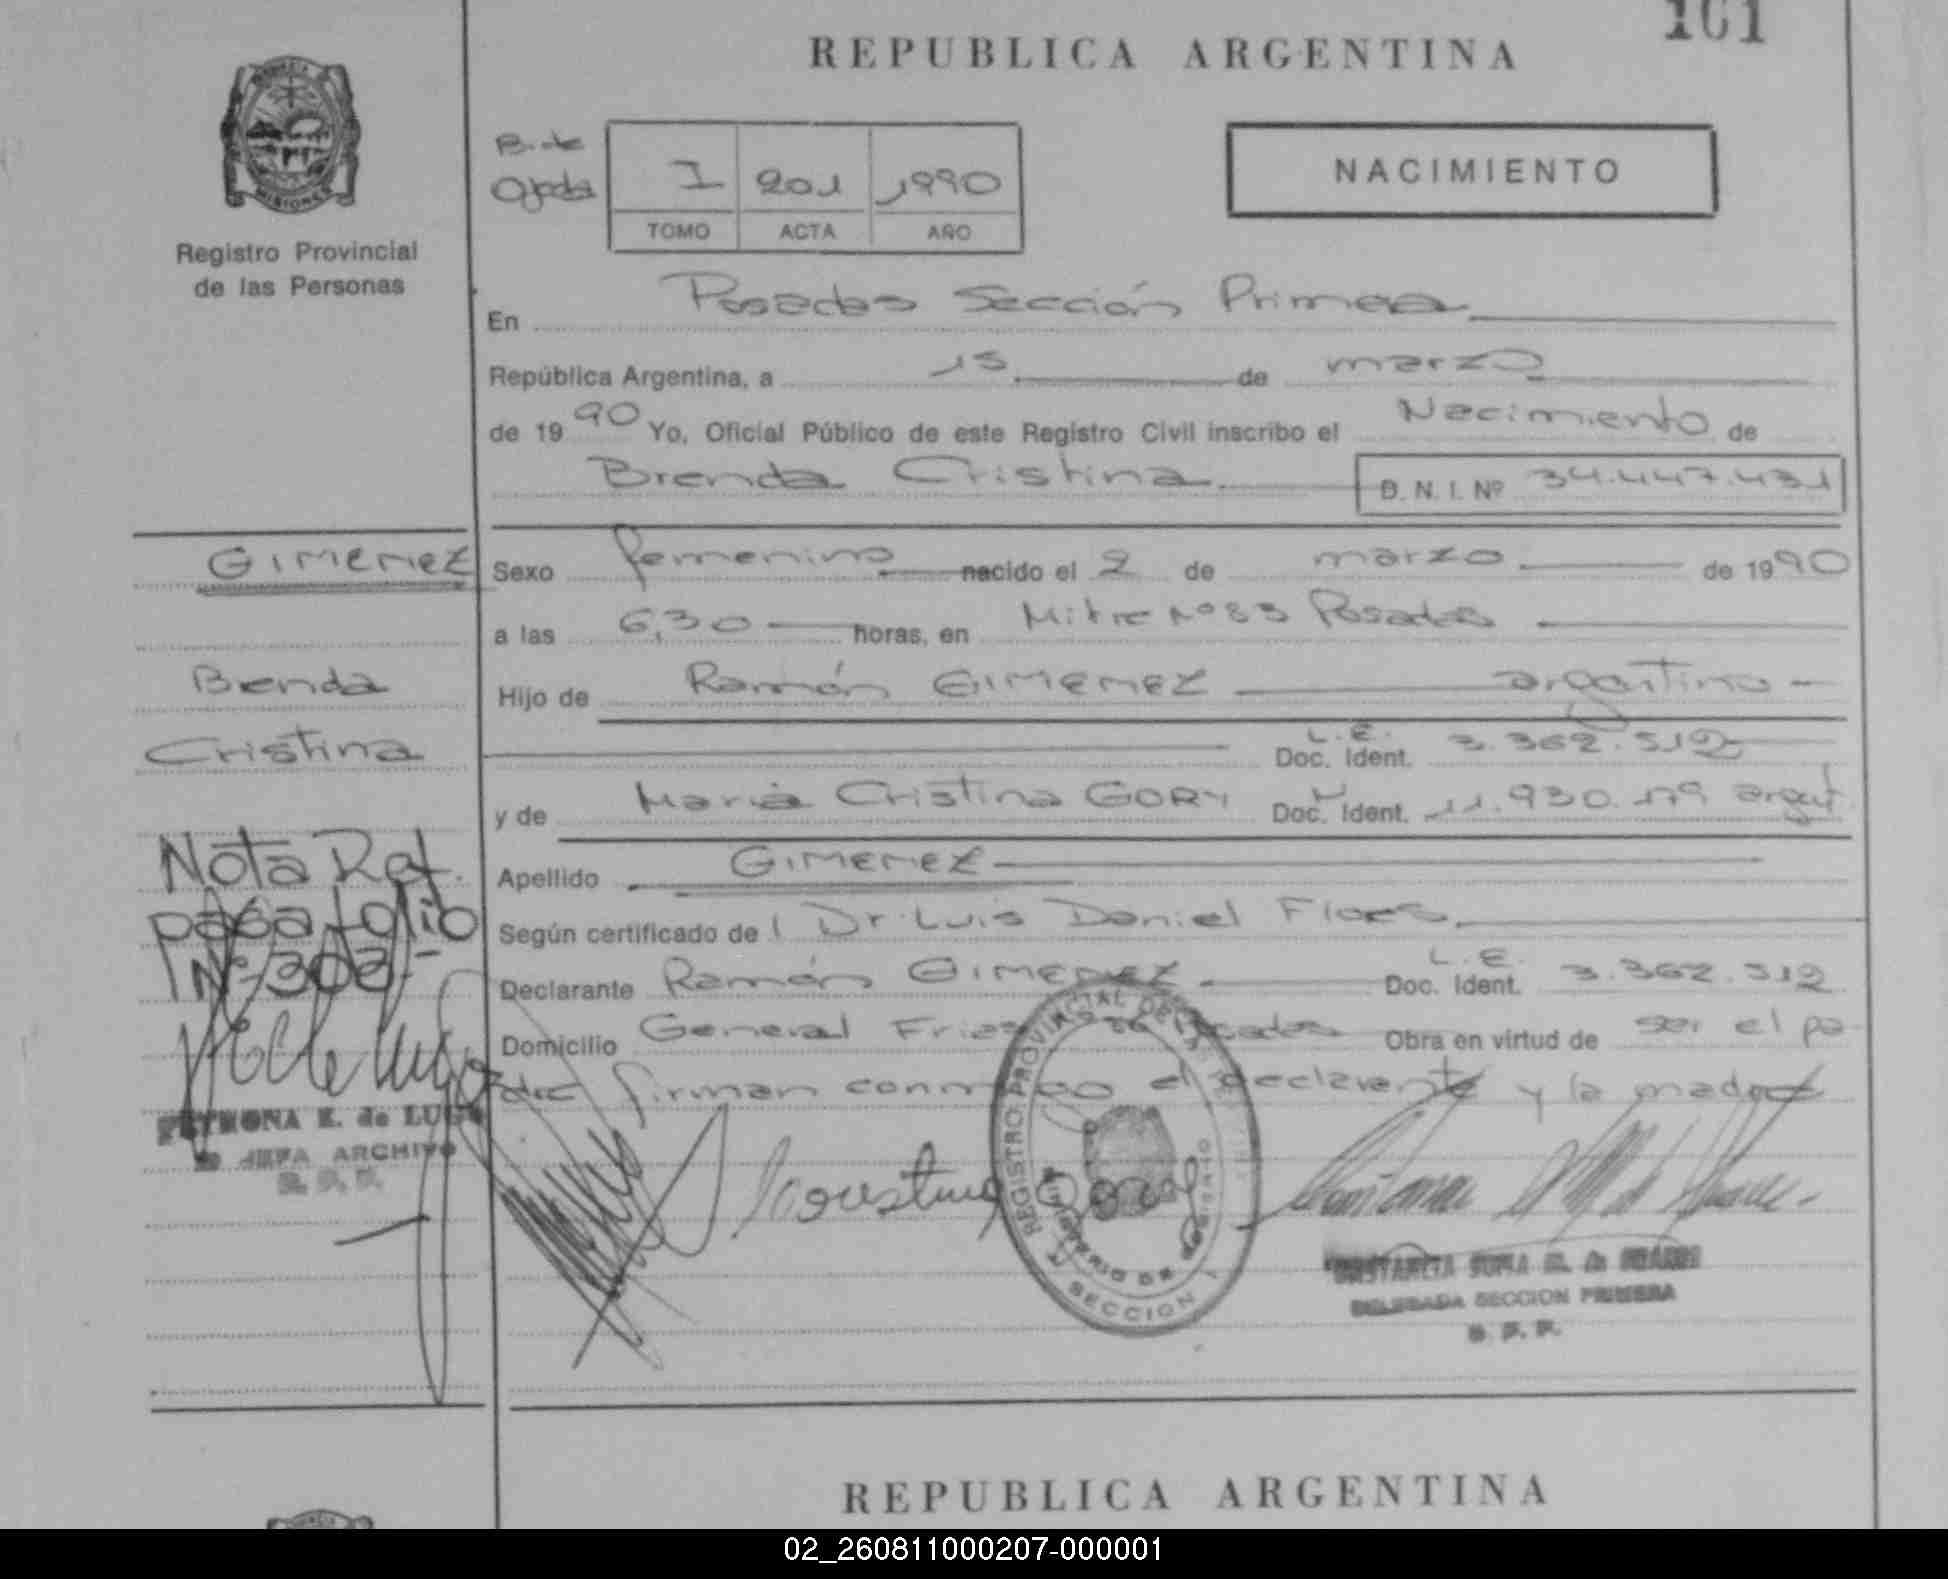 101
REPUBLICA ARGENTINA
MISIONES
Registro Provincial
de las Personas
Ojeda
I 201 1990
TOMO ACTA AÑO
NACIMIENTO
En Posadas Sección Primera
República Argentina, a 15 de marzo
de 1990 Yo, Oficial Público de este Registro Civil inscribo el Nacimiento de
Brenda Cristina D. N. I. Nº 34.447.431
GIMENEZ
Sexo femenino nacido el 2 de marzo de 1990
a las 6,30 horas, en Mitre Nº 83 Posadas
Brenda
Hijo de Ramón GIMENEZ argentino
Cristina
L.E.
Doc. Ident. 3.362.512
y de Maria Cristina GORY Doc. Ident. 11.930.179 argent
Nota Ref.
pasa folio
Nº 303
Apellido GIMENEZ
Según certificado de Dr. Luis Daniel Flores
L.E.
Declarante Ramón GIMENEZ Doc. Ident. 3.362.512
Domicilio General Frias Posadas Obra en virtud de ser el pa-
dre firman conmigo el declarante y la madre
PETRONA E. de LUGO
JEFA ARCHIVO
REGISTRO PROVINCIAL DE LAS
MINISTERIO DE GOBIERNO
SECCION 1
DELEGADA SECCION PRIMERA
REPUBLICA ARGENTINA
02_260811000207-000001